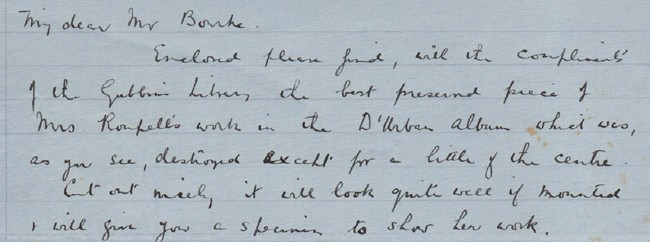 My dear Mr Bourke.
Enclosed please find, with the compliments
of the Gubbins Library the best preserved piece of
Mrs Roupell's work in the D'Urban Album which was,
as you see, destroyed except for a little of the centre.
Cut out nicely it will look quite well if mounted
& will give you a specimen to show her work.